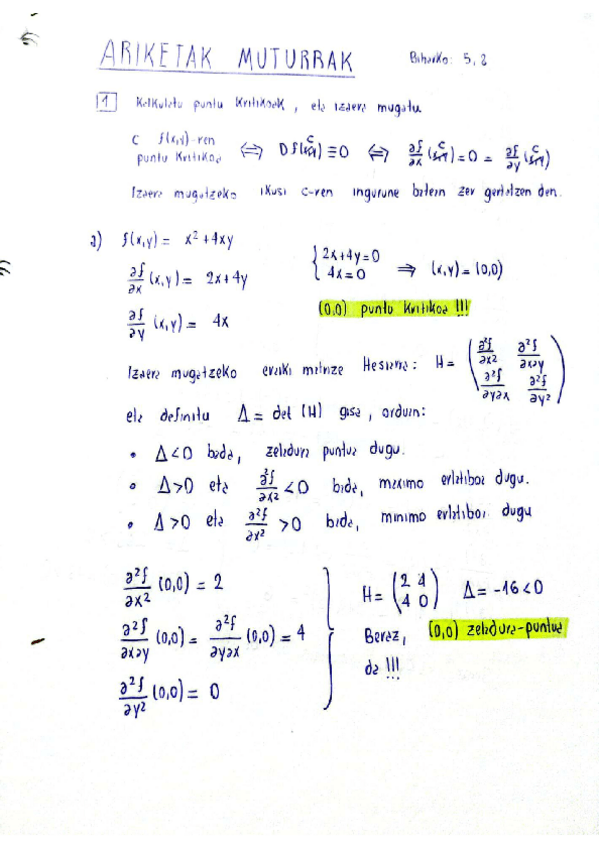 ARIKETAK MUTURRAK
Biharko: 5, 8
1 Kalkulatu puntu kritikoak, eta izaera mugatu
C f(x,y)-ren puntu kritikoa ⟺ Df(C) ≡ 0 ⟺ ∂f/∂x (C) = 0 = ∂f/∂y (C)
Izaera mugatzeko ikusi C-ren ingurune batean zer gertatzen den.
a) f(x,y) = x² + 4xy
∂f/∂x (x,y) = 2x + 4y
{ 2x+4y=0
4x=0 ⇒ (x,y) = (0,0)
∂f/∂y (x,y) = 4x
(0,0) puntu kritikoa !!!
Izaera mugatzeko eraiki matrize Hesiarra: H = ( ∂²f/∂x² ∂²f/∂x∂y
∂²f/∂y∂x ∂²f/∂y² )
eta definitu Δ = det (H) gisa, orduan:
• Δ<0 bada, zeladura puntua dugu.
• Δ>0 eta ∂²f/∂x² <0 bada, maximo erlatiboa dugu.
• Δ>0 eta ∂²f/∂x² >0 bada, minimo erlatiboa dugu
∂²f/∂x² (0,0) = 2
∂²f/∂x∂y (0,0) = ∂²f/∂y∂x (0,0) = 4
∂²f/∂y² (0,0) = 0
H = ( 2 4
4 0 ) Δ = -16 < 0
Beraz, (0,0) zeladura-puntua
da !!!